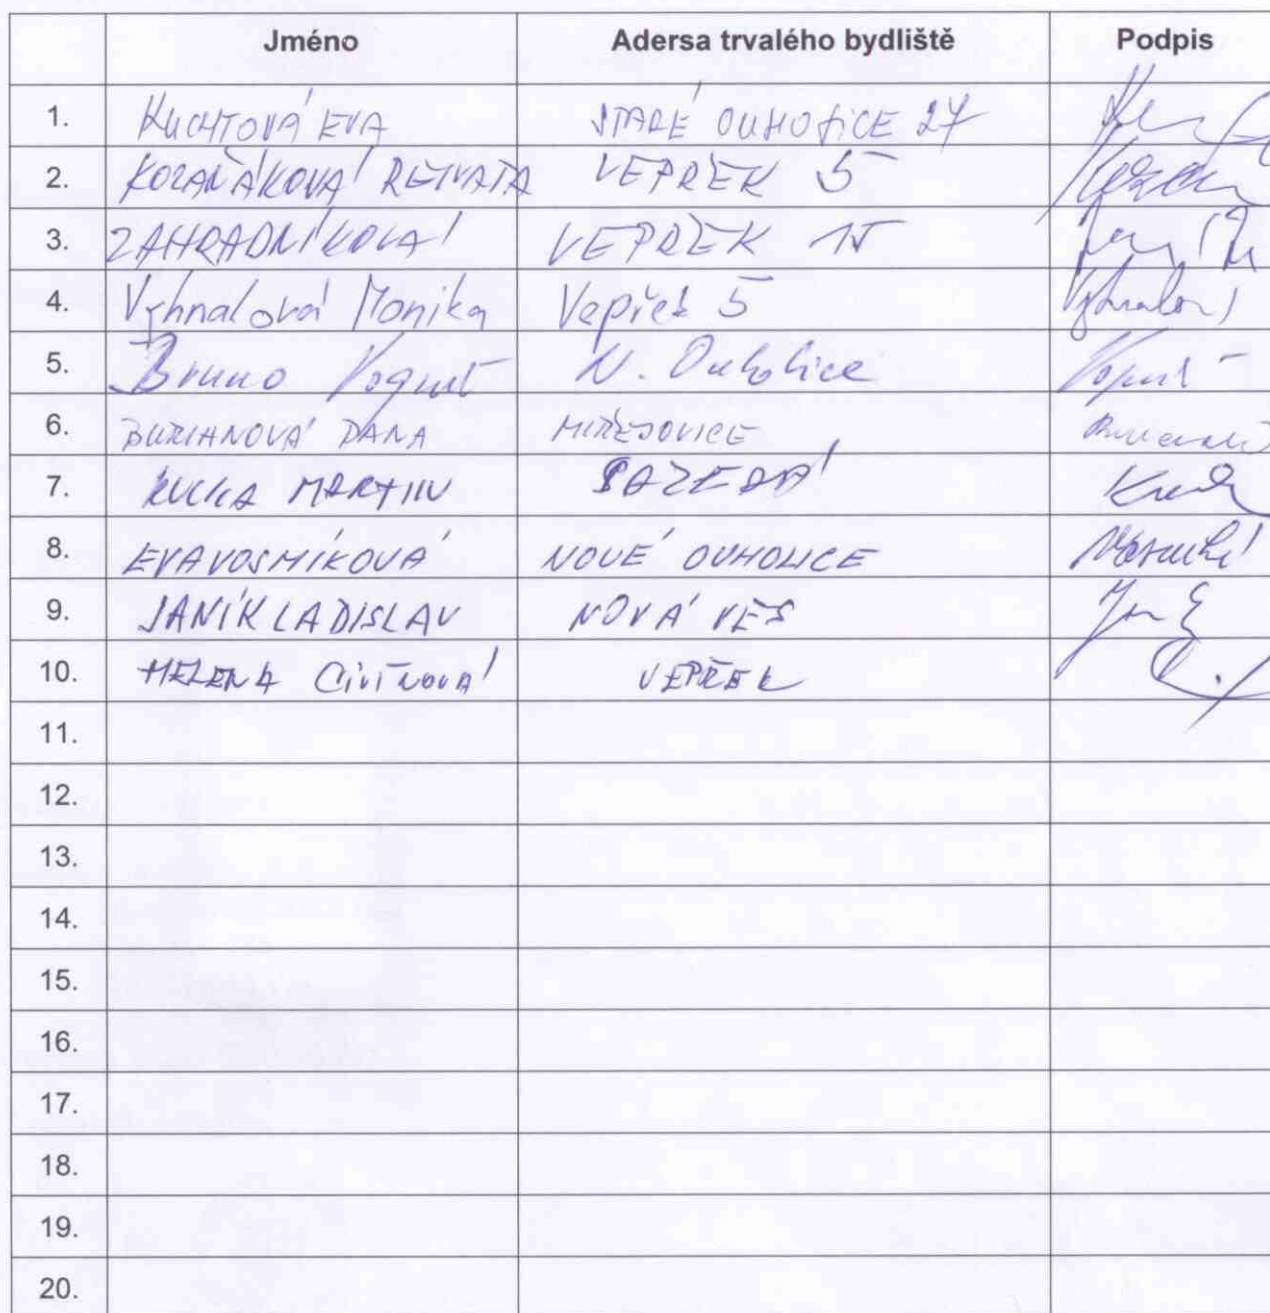 Jméno Adersa trvalého bydliště Podpis
1. KUCHTOVÁ EVA STARÉ OUHOLICE 27
2. KOZAŇÁKOVÁ RENATA VEPŘEK 5
3. ZAHRADNÍKOVÁ VEPŘEK 15
4. Vyhnalová Monika Vepřek 5
5. Bruno N. Ouholice
6. BURIANOVÁ DANA MIŘEJOVICE
7. KUČKA MARTIN SAZENÁ
8. EVA VOSMÍKOVÁ NOVÉ OUHOLICE
9. JANÍK LADISLAV NOVÁ VES
10. HELENA VEPŘEK
11.
12.
13.
14.
15.
16.
17.
18.
19.
20.